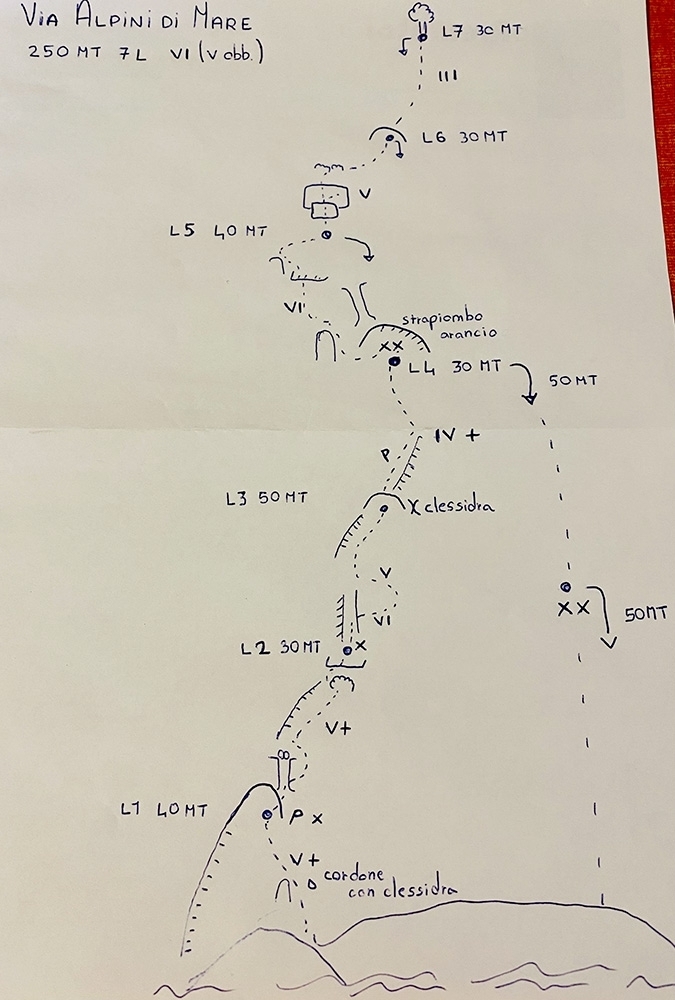 VIA ALPINI DI MARE
250 MT 7L VI (V obb.)
L7 30 MT
III
L6 30 MT
V
L5 40 MT
VI
strapiombo
arancio
XX
L4 30 MT
50 MT
IV +
P
L3 50 MT
X clessidra
V
VI
XX
50MT
L2 30 MT
X
V+
L1 40 MT
P X
V+
cordone
con clessidra